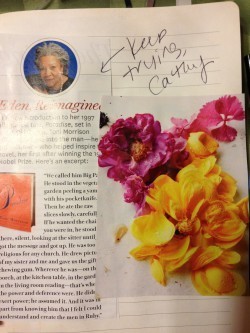 Keep
trying,
Cathy
Eden, Reimagined
introduction to her 1997
Paradise, set in
Morrison
into the man—he
who helped inspire
novel, her first after winning the
Nobel Prize. Here's an excerpt:
"We called him Big Pa
He stood in the vegeta
garden peeling a yam
with his pocketknife.
Then he ate the raw
slices slowly, carefully
If he wanted the chair
you were in, he stood
there, silent, looking at the sitter until
got the message and got up. He was too
religious for any church. He drew pictu
of my sister and me and gave us the gift
chewing gum. Wherever he was—on th
porch, at the kitchen table, in the garde
in the living room reading—that's whe
the power and deference were. He didn
exert power; he assumed it. And it was in
part from knowing him that I felt I could
understand and create the men in Ruby."